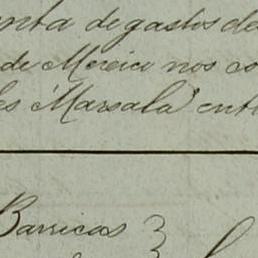 enta de gastos de
de Mexico nos so
es "Marsala" ent
Barricas }